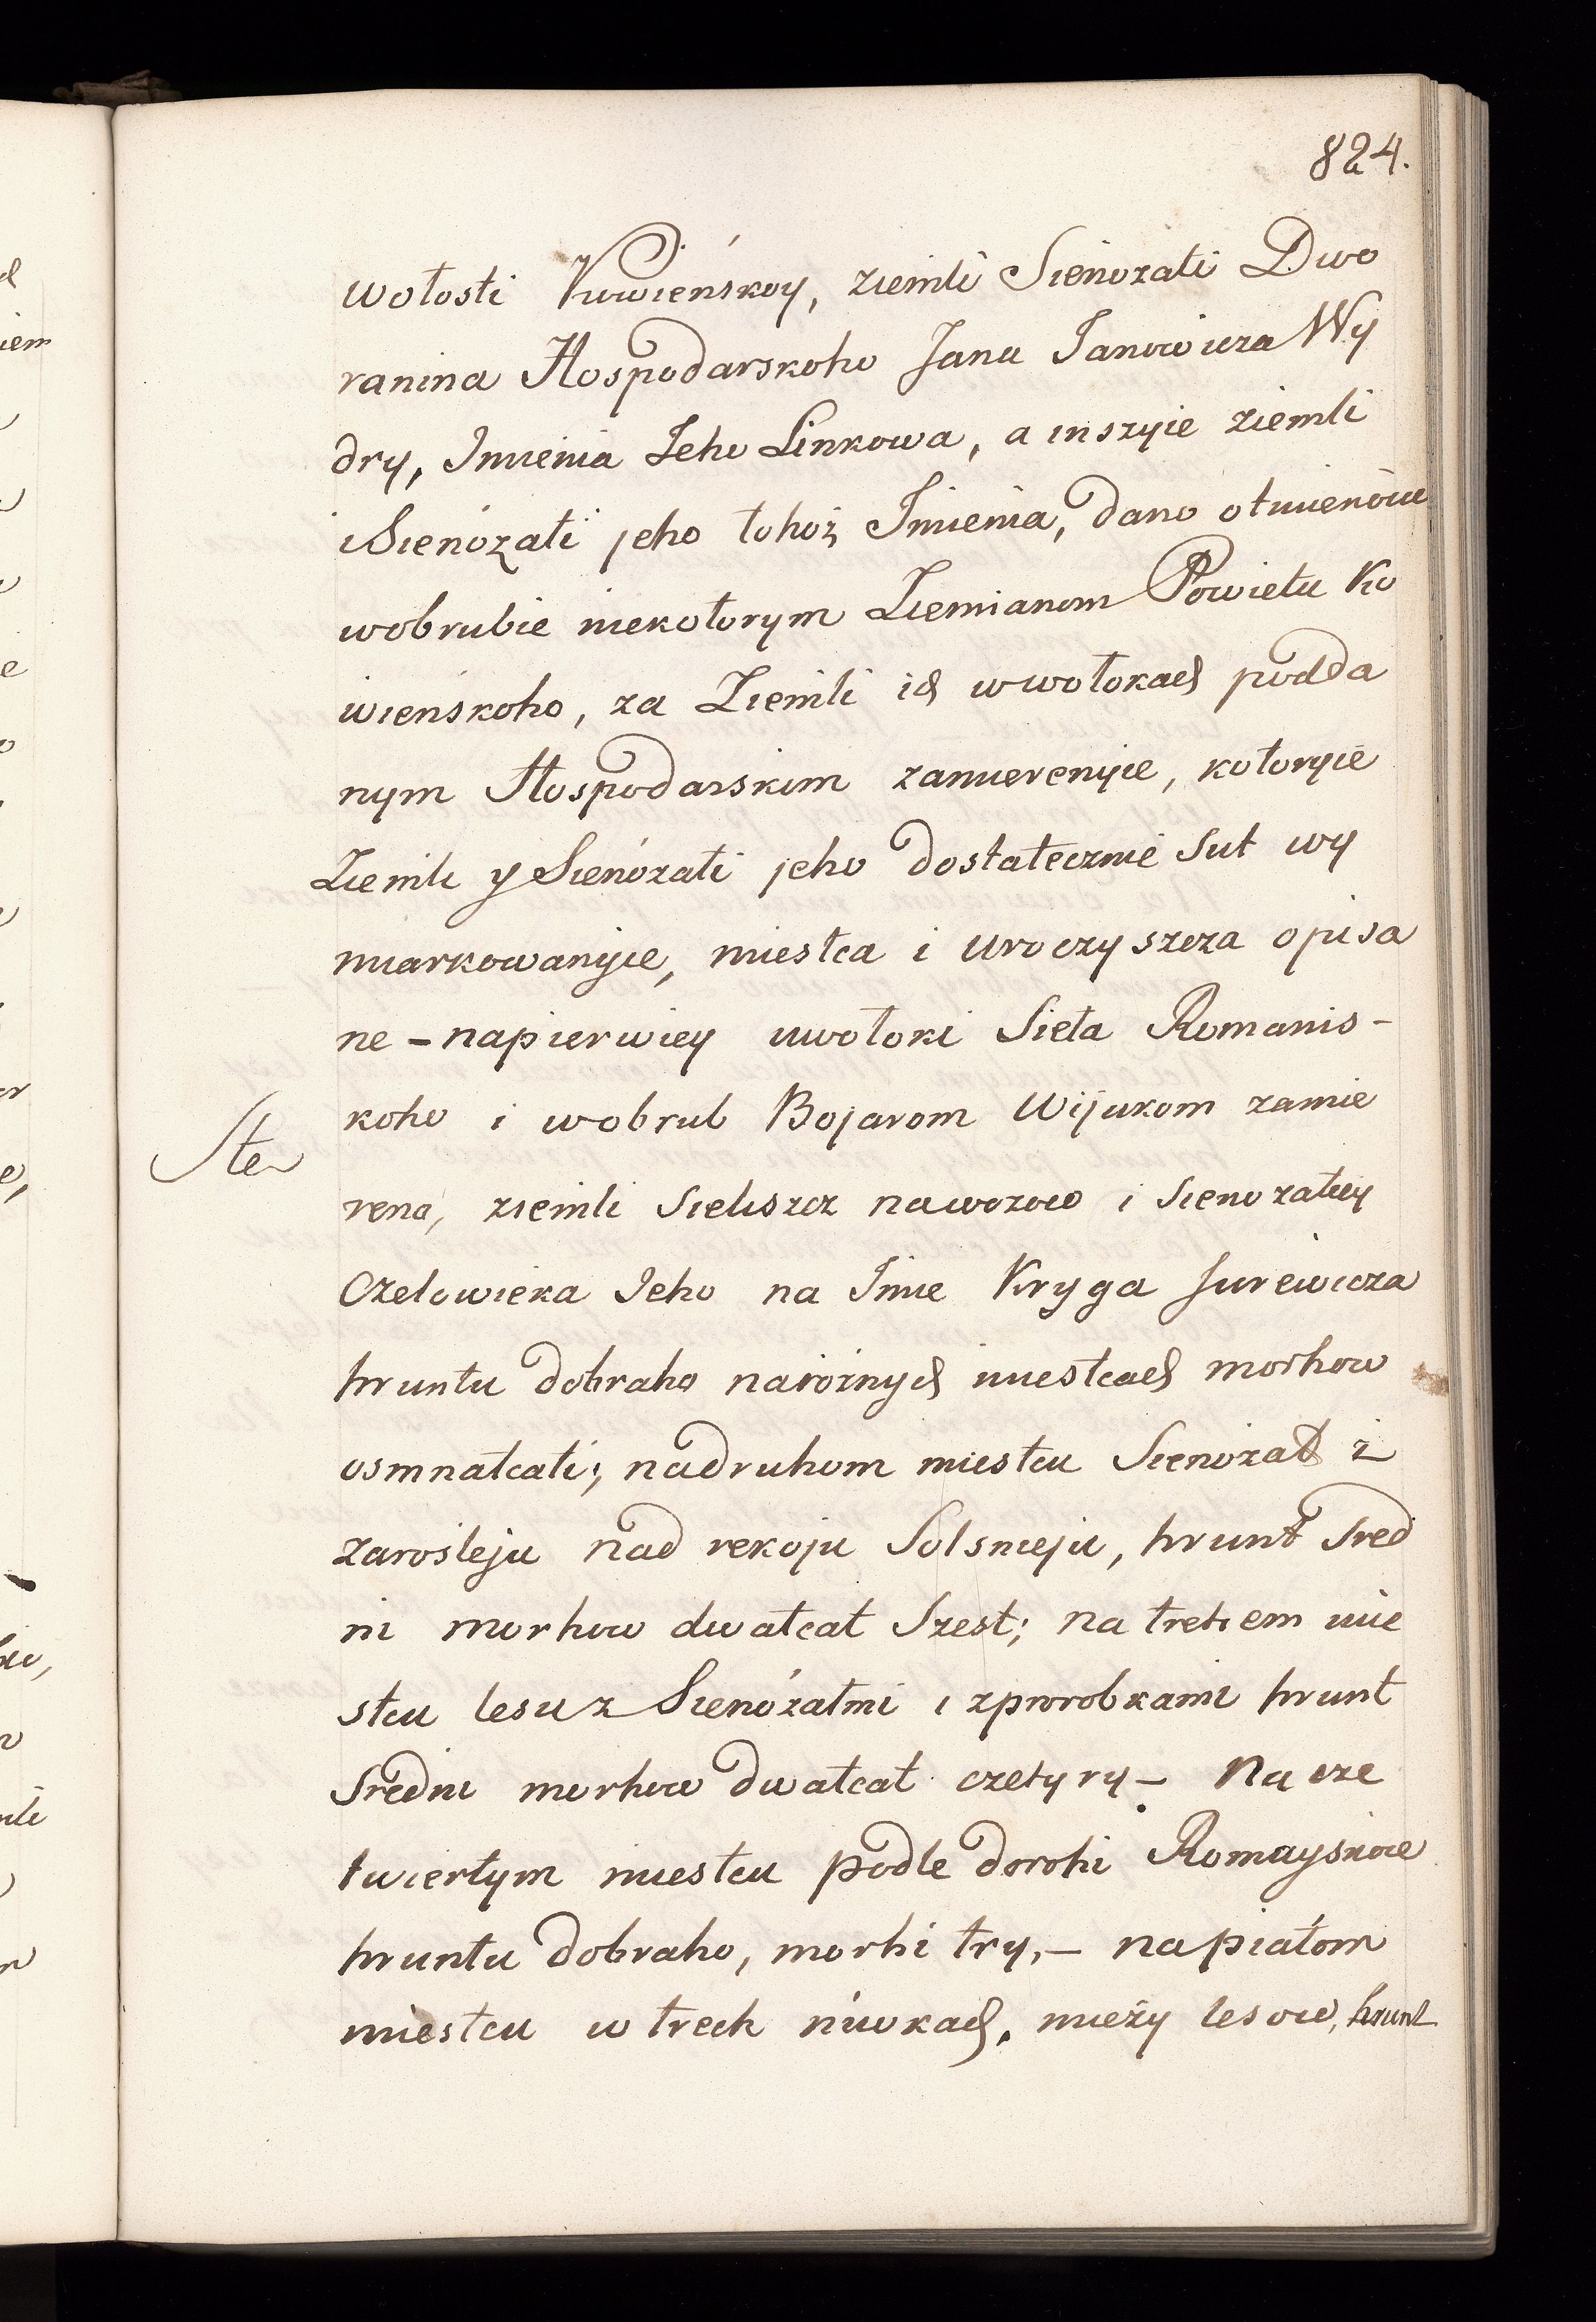 824.
wołosti Kowieńskoy, ziemli Sienożati Dwo
ranina Hospodarskoho Jana Janowicza Wy
dry, Imienia Jeho Linkowa, a inszyie ziemli
i Sienożati jeho tohoż Imienia, dano otmienoiu
wobrubie niekotorym Ziemianom Powietu Ko
wieńskoho, za Ziemli ich w wołokach podda
nym Hospodarskim zamierenyie, kotoryie
Ziemli y Sienożati jeho dostateeznie Sut wy
miarkowanyie, miestca i uroczyszcza opisa
ne – napierwiey uwołoki Sieła Romanis-
koho i wobrub Bojarom Wijukom zamie
Ste
reno, ziemli Sieliszcz nawozow i Sienożatey
Czełowieka Jeho na Imie Kryga Jurewicza
hruntu dobraho narożnych miestcach morhow
osmnatcati; nadruhom miestcu Sienożat z
zarosleju nad rekoju Solsnieju, hrunt Sred
ni morhow dwatcat Szest; na tretiem mie
stcu lesu z Sienożatmi i zprorobkami hrunt
Sredni morhow dwatcat czetyry – Na cze
twiertym miestcu podle dorohi Romayskoie
hruntu dobraho, morhi try, – napiatom
miestcu w trech niwkach, mieży lesow, hrunt